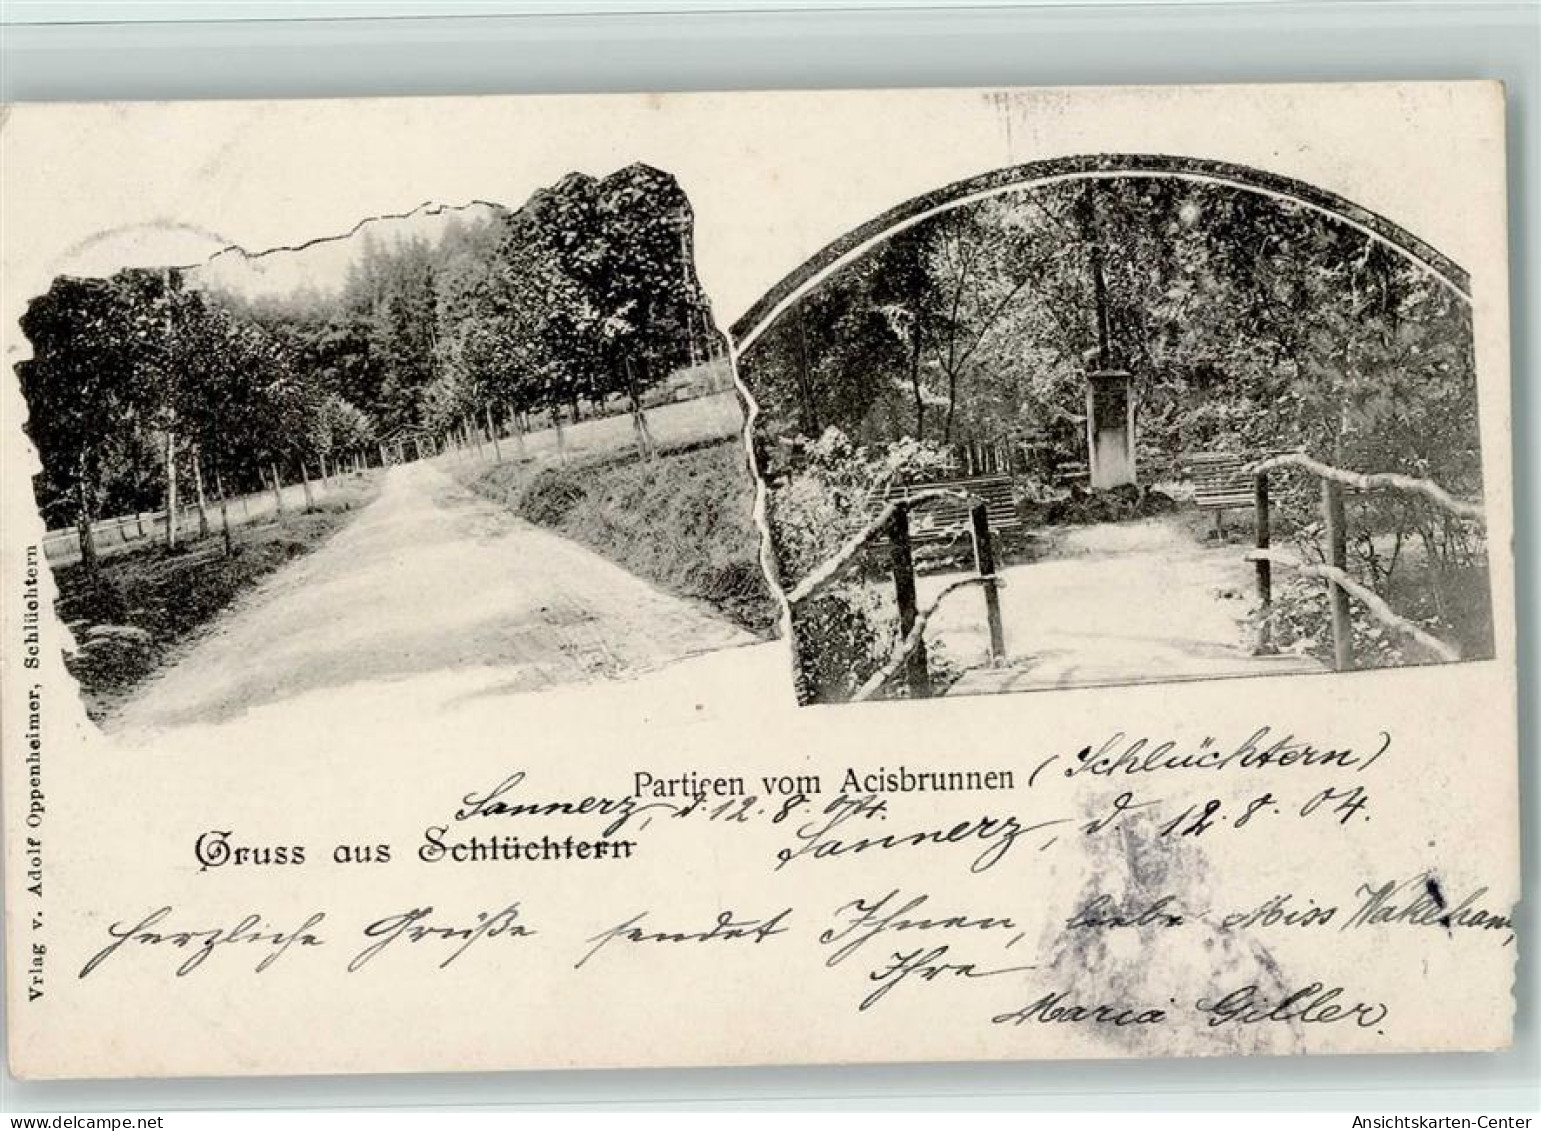 Vrlag v. Adolf Oppenheimer, Schlüchtern
Partieen vom Acisbrunnen (Schlüchtern)
Sannerz, d. 12. 8. 04.
Gruss aus Schlüchtern
Sannerz, d. 12. 8. 04.
Herzliche Grüße sendet Ihnen, liebe Miss Wakeham,
Ihre
Maria Giller.
delcampe.net
Ansichtskarten-Center